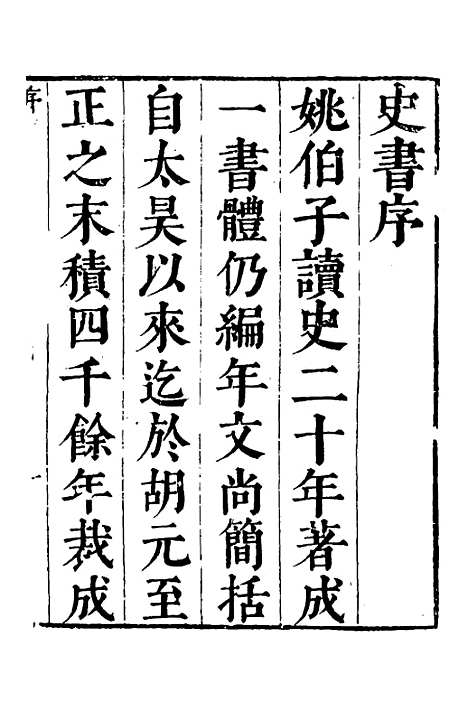 史書序
姚伯子讀史二十年著成
一書體仍編年文尚簡括
自太昊以來迄於胡元至
正之末積四千餘年裁成
序